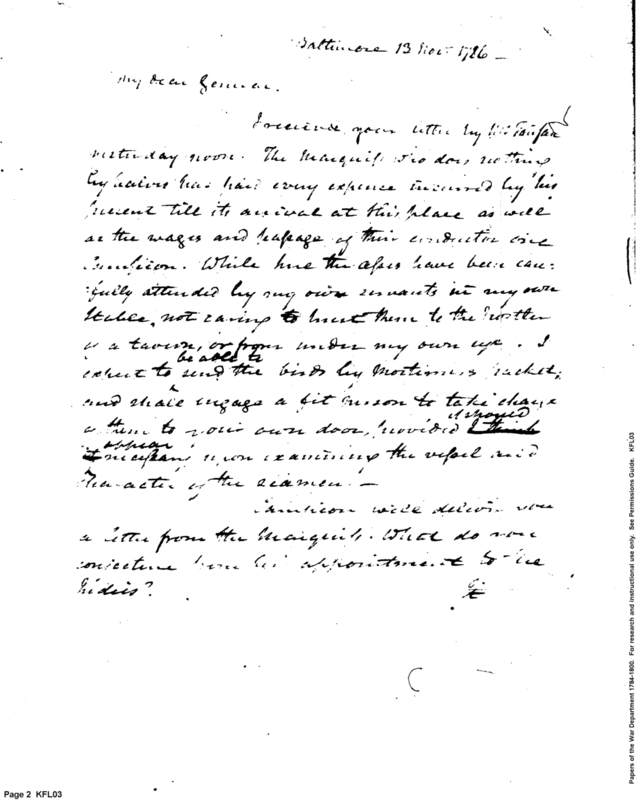 Baltimore 13 Nov. 1786 –
My Dear General.
I received your letter by Mr Fairfax
yesterday noon. The Marquis who does nothing
by halves has paid every expence incurred by his
present till its arrival at this place as well
as the wages and passage of their conductor
Campion. While here the asses have been care=
fully attended by my own servants in my own
Stable, not caring to trust them to the hostler
of a tavern, or from under my own eye. I
expect to be able to send the birds by Mortimers packet;
and shall engage a fit person to take charge
of them to your own door, provided I think it should
it appear necessary upon examining the vessel and
character of the seamen. –
Campion will deliver you
a letter from the Marquis. What do you
conjecture from his appointment to the
Indies?
Page 2 KFL03
Papers of the War Department 1784-1800. For research and instructional use only. See Permissions Guide. KFL03